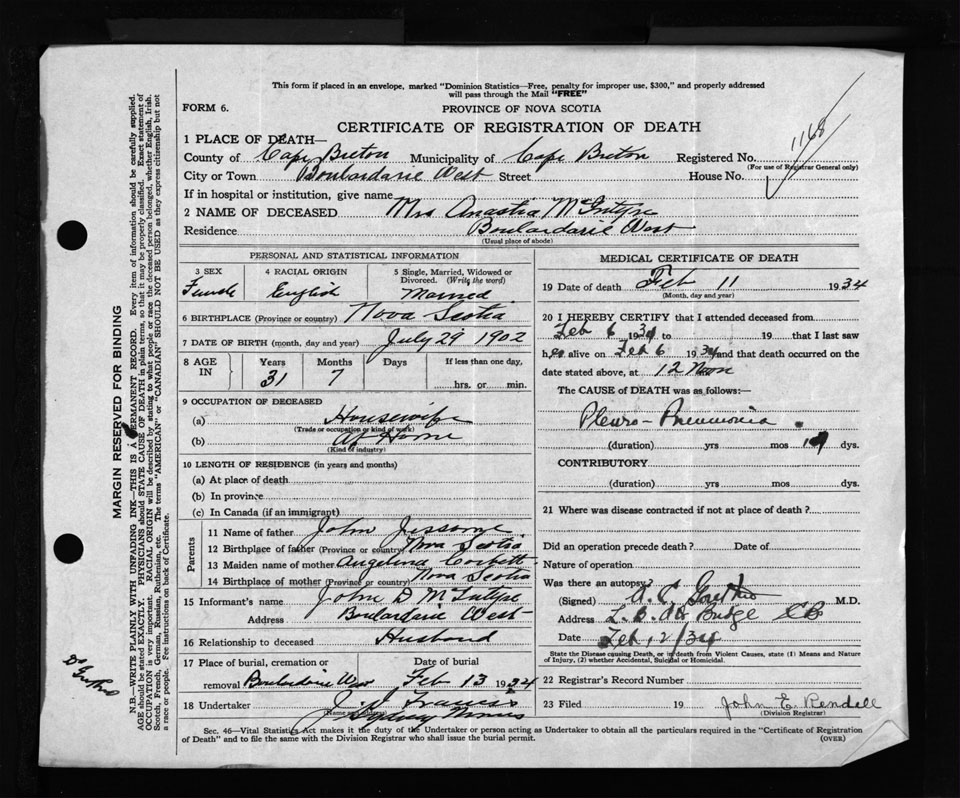 This form if placed in an envelope, marked "Dominion Statistics—Free, penalty for improper use, $300," and properly addressed
will pass through the Mail "FREE"
FORM 6.
PROVINCE OF NOVA SCOTIA
CERTIFICATE OF REGISTRATION OF DEATH
1168
1 PLACE OF DEATH—
County of Cape Breton Municipality of Cape Breton Registered No.
(For use of Registrar General only)
City or Town Boulardarie West Street House No.
If in hospital or institution, give name
2 NAME OF DECEASED Mrs Anastia McIntyre
Residence Boulardarie West
(Usual place of abode)
PERSONAL AND STATISTICAL INFORMATION
3 SEX 4 RACIAL ORIGIN 5 Single, Married, Widowed or Divorced. (Write the word)
Female English Married
6 BIRTHPLACE (Province or country) Nova Scotia
7 DATE OF BIRTH (month, day and year) July 29 1902
8 AGE IN Years Months Days If less than one day,
31 7 hrs. or min.
9 OCCUPATION OF DECEASED
(a) Housewife
(Trade or occupation or kind of work)
(b) At Home
(Kind of industry)
10 LENGTH OF RESIDENCE (in years and months)
(a) At place of death
(b) In province
(c) In Canada (if an immigrant)
Parents
11 Name of father John Jessome
12 Birthplace of father (Province or country) Nova Scotia
13 Maiden name of mother Angelina Corbett
14 Birthplace of mother (Province or country) Nova Scotia
15 Informant's name John D McIntyre
Address Boulardarie West
16 Relationship to deceased Husband
17 Place of burial, cremation or Date of burial
removal Boulardarie West Feb 13 1934
18 Undertaker J. J. Francis
(Name and address)
Sydney Mines
MEDICAL CERTIFICATE OF DEATH
19 Date of death Feb 11 1934
(Month, day and year)
20 I HEREBY CERTIFY that I attended deceased from
Feb 6 1934 to 19 that I last saw
her alive on Feb 6 1934 and that death occurred on the
date stated above, at 12 Noon
The CAUSE OF DEATH was as follows:—
Pleuro-Pneumonia
(duration) yrs mos dys.
CONTRIBUTORY
(duration) yrs. mos. dys.
21 Where was disease contracted if not at place of death?
Did an operation precede death? Date of
Nature of operation
Was there an autopsy?
(Signed) M.D.
Address Bridge CB
Date Feb 12/34
State the Disease causing Death, or in death from Violent Causes, state (1) Means and Nature
of Injury, (2) whether Accidental, Suicidal or Homicidal.
22 Registrar's Record Number
23 Filed 19 John E. Rendell
(Division Registrar)
Sec. 46—Vital Statistics Act makes it the duty of the Undertaker or person acting as Undertaker to obtain all the particulars required in the "Certificate of Registration
of Death" and to file the same with the Division Registrar who shall issue the burial permit. (OVER)
MARGIN RESERVED FOR BINDING
N.B.—WRITE PLAINLY WITH UNFADING INK—THIS IS A PERMANENT RECORD. Every item of information should be carefully supplied.
AGE should be stated EXACTLY. PHYSICIANS should STATE CAUSE OF DEATH in plain terms, so that it may be properly classified. Exact statement of
OCCUPATION is very important. RACIAL ORIGIN will be described by stating to what people or race the deceased person belonged, whether English, Irish,
Scotch, French, German, Russian, Ruthenian, etc. The terms "AMERICAN" or "CANADIAN" SHOULD NOT BE USED as they express citizenship but not
a race or people. See instructions on back of Certificate.